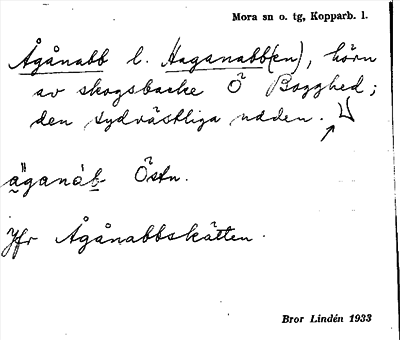 Mora sn o. tg, Kopparb. l.
Ågånabb l. Haganabb(en), hörn
av skogsbacke Ö Bogghed;
den sydvästliga udden.
ä̀ganàb Östn.
Jfr Ågånabbskätten.
Bror Lindén 1933